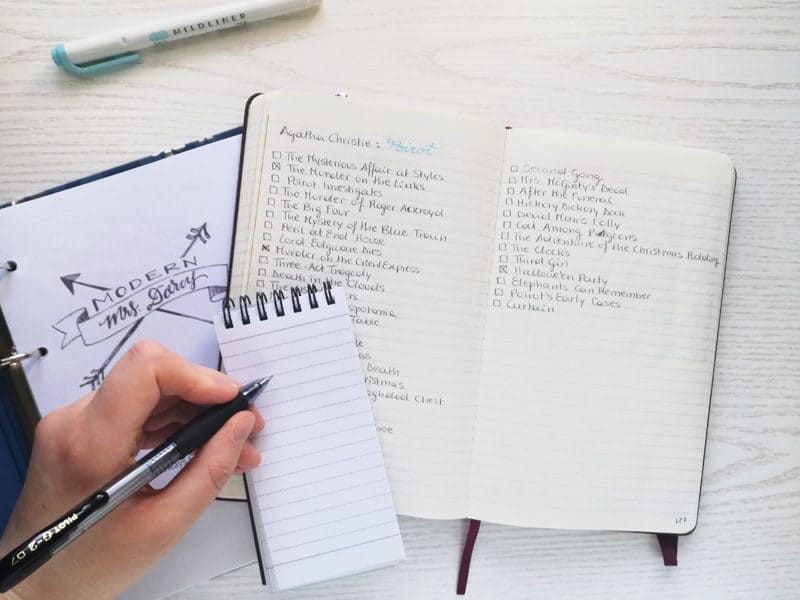 MILDLINER
Agatha Christie: Poirot
The Mysterious Affair at Styles
The Murder on the Links
Poirot Investigates
The Murder of Roger Ackroyd
The Big Four
The Mystery of the Blue Train
Peril at End House
Lord Edgware Dies
Murder on the Orient Express
Three-Act Tragedy
Death in the Clouds
Table
Death
Christmas
Chest
Second Gong
Mrs McGinty's Dead
After the Funeral
Hickory Dickory Dock
Dead Man's Folly
Cat Among Pigeons
The Adventure of the Christmas Pudding
The Clocks
Third Girl
Hallowe'en Party
Elephants can Remember
Poirot's Early Cases
Curtain
MODERN
Mrs Darcy
PILOT G-2 07